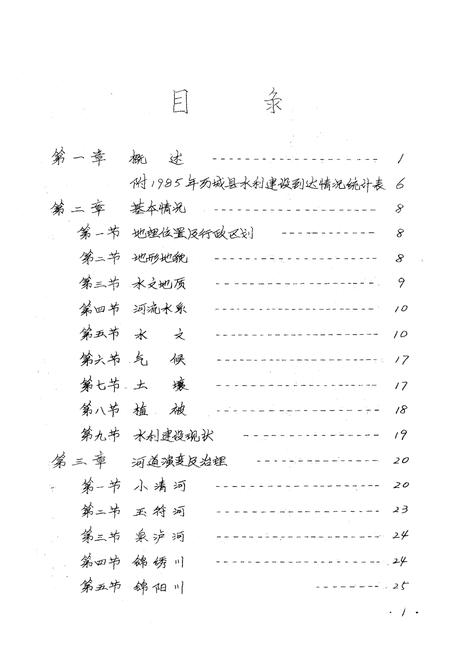 目 录
第一章 概 述 ---------------- 1
附1985年历城县水利建设到达情况统计表 6
第二章 基本情况 ---------------- 8
第一节 地理位置及行政区划 ------------ 8
第二节 地形地貌 ---------------- 8
第三节 水文地质 ---------------- 9
第四节 河流水系 ---------------- 10
第五节 水 文 ---------------- 10
第六节 气 候 ---------------- 17
第七节 土 壤 ---------------- 17
第八节 植 被 ---------------- 18
第九节 水利建设现状 ------------- 19
第三章 河道演变及治理 ------------- 20
第一节 小清河 ---------------- 20
第二节 玉符河 ---------------- 23
第三节 泉泸河 ---------------- 24
第四节 锦绣川 ---------------- 24
第五节 锦阳川 ------- 25
· 1 ·